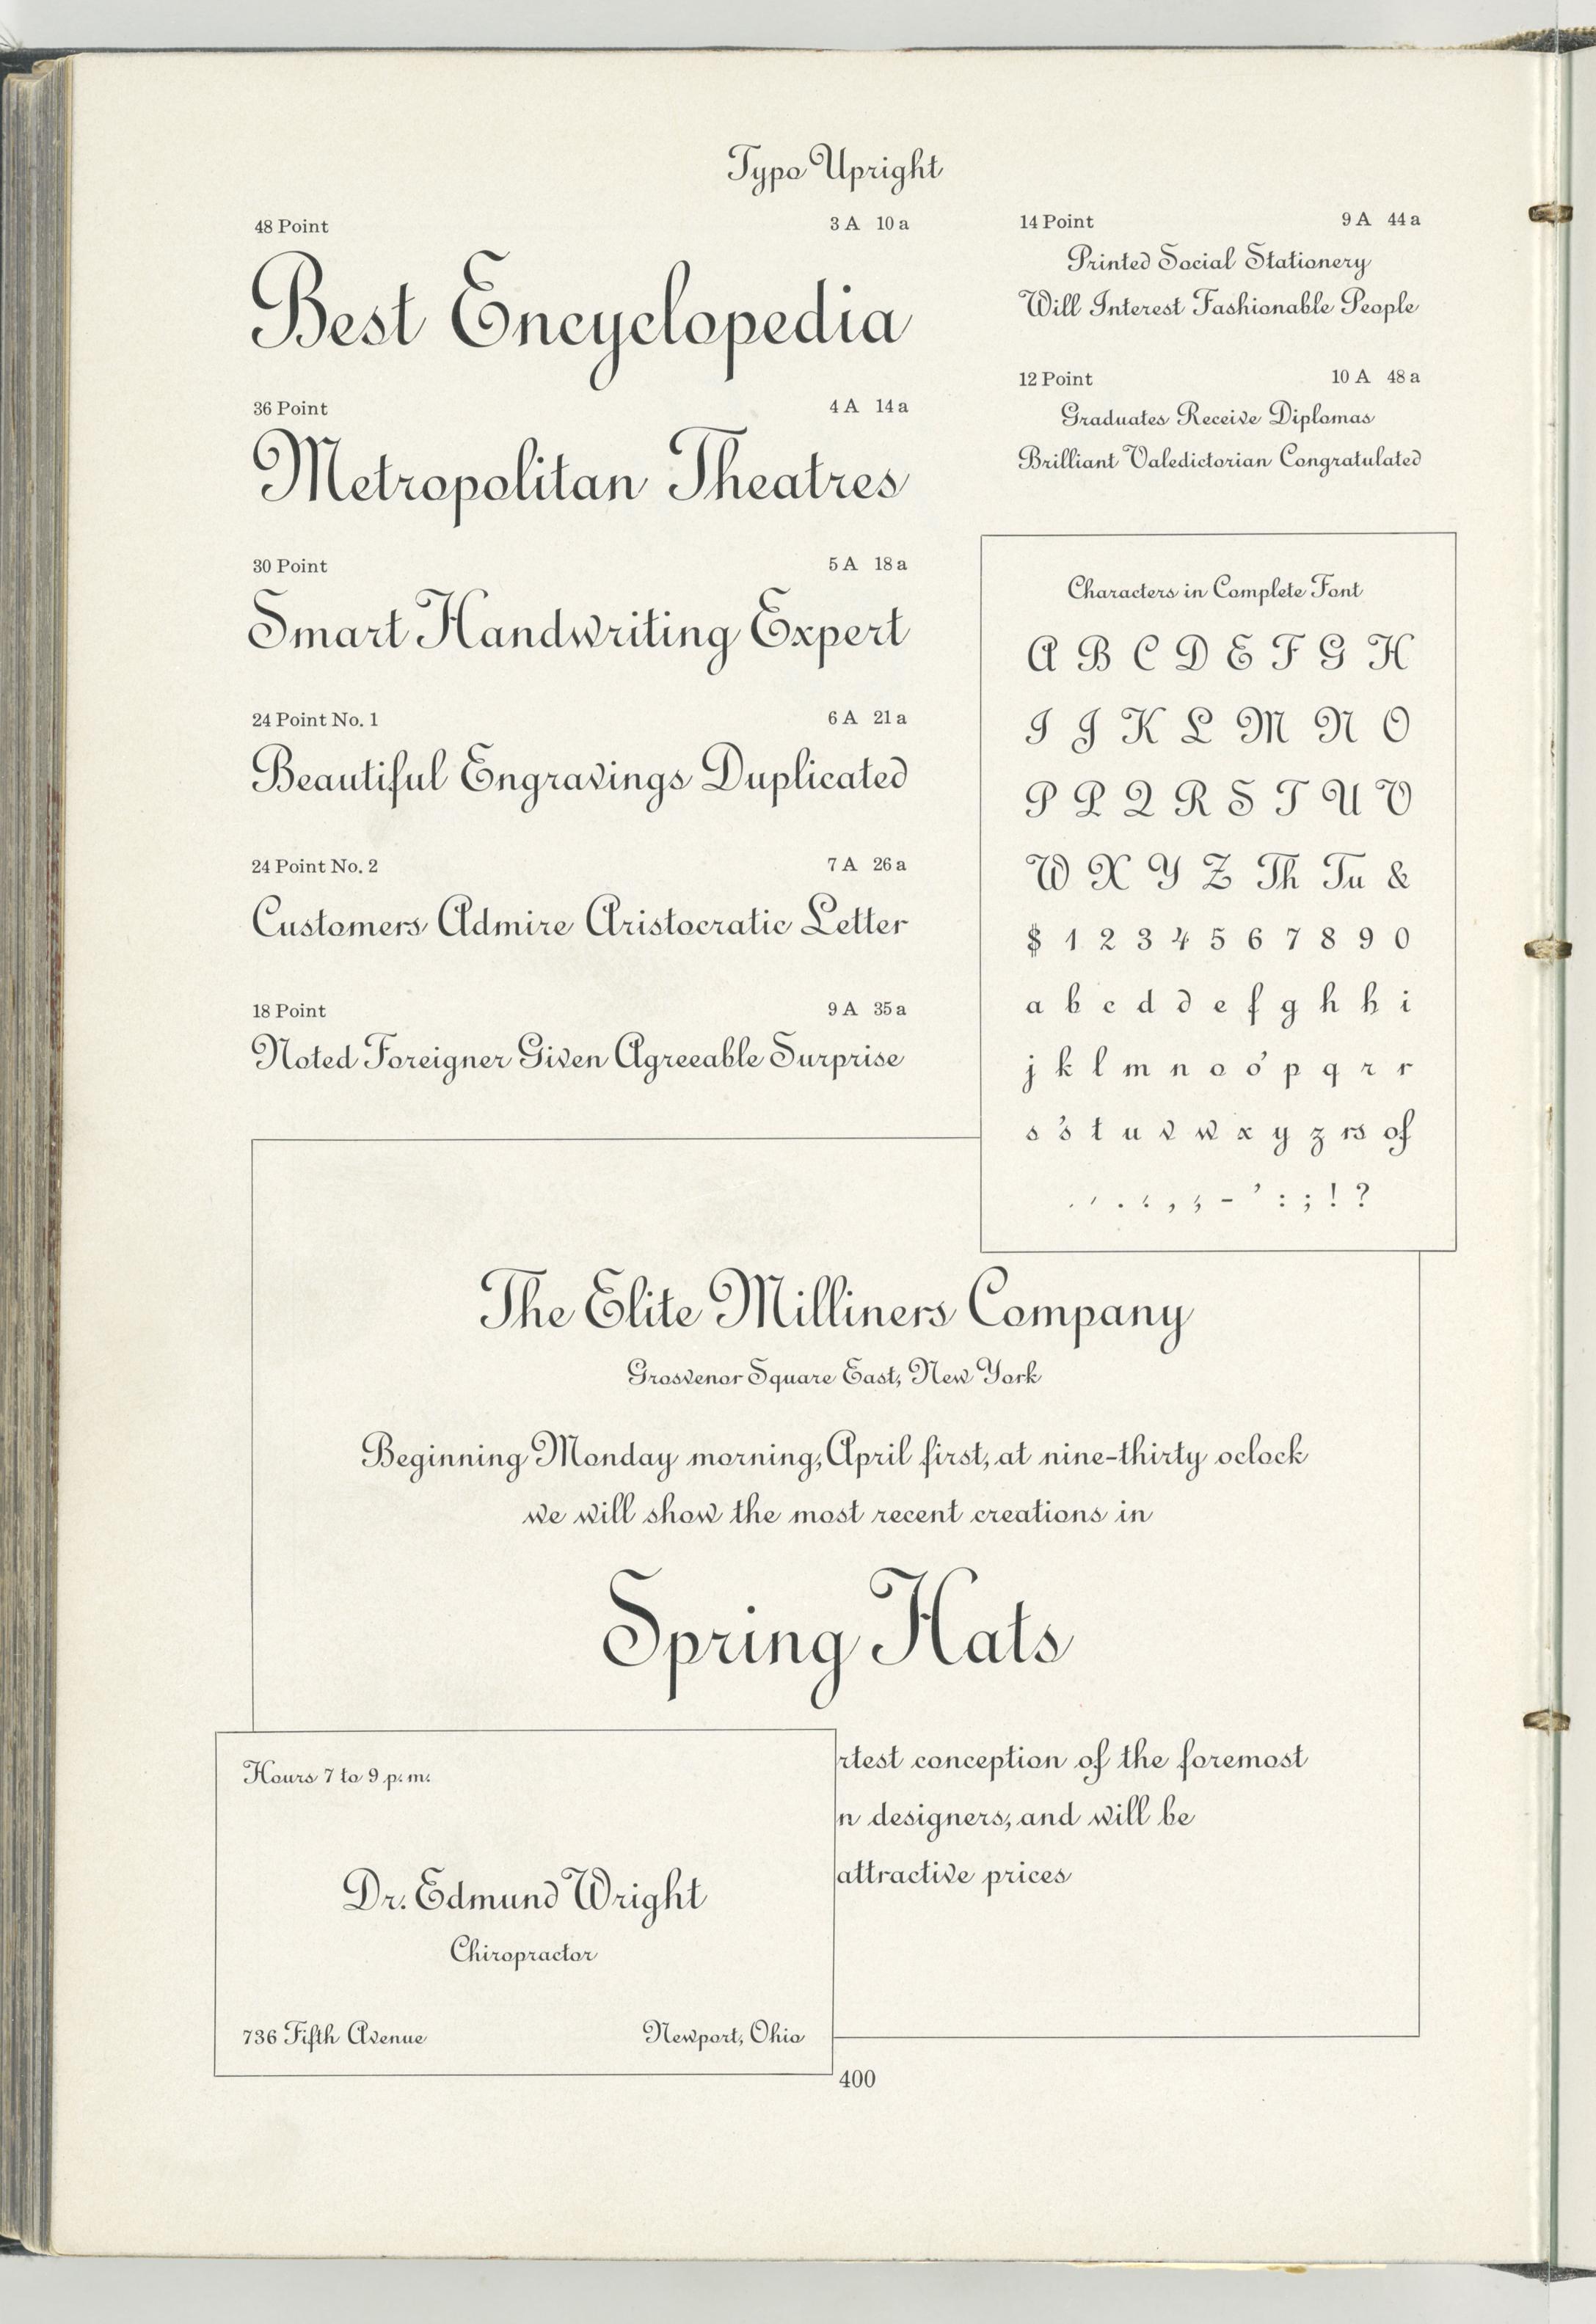 Typo Upright
48 Point 3 A 10 a
Best Encyclopedia
36 Point 4 A 14 a
Metropolitan Theatres
30 Point 5 A 18 a
Smart Handwriting Expert
24 Point No. 1 6 A 21 a
Beautiful Engravings Duplicated
24 Point No. 2 7 A 26 a
Customers Admire Aristocratic Letter
18 Point 9 A 35 a
Noted Foreigner Given Agreeable Surprise
14 Point 9 A 44 a
Printed Social Stationery
Will Interest Fashionable People
12 Point 10 A 48 a
Graduates Receive Diplomas
Brilliant Valedictorian Congratulated
Characters in Complete Font
A B C D E F G H
I J K L M N O
P P Q R S T U V
W X Y Z Th Tu &
$ 1 2 3 4 5 6 7 8 9 0
a b c d d e f g h h i
j k l m n o o' p q r r
s 's t u v w x y z rs of
. ' . : , ; - ' : ; ! ?
The Elite Milliners Company
Grosvenor Square East, New York
Beginning Monday morning, April first, at nine-thirty oclock
we will show the most recent creations in
Spring Hats
rtest conception of the foremost
n designers, and will be
attractive prices
Hours 7 to 9 p. m.
Dr. Edmund Wright
Chiropractor
736 Fifth Avenue Newport, Ohio
400